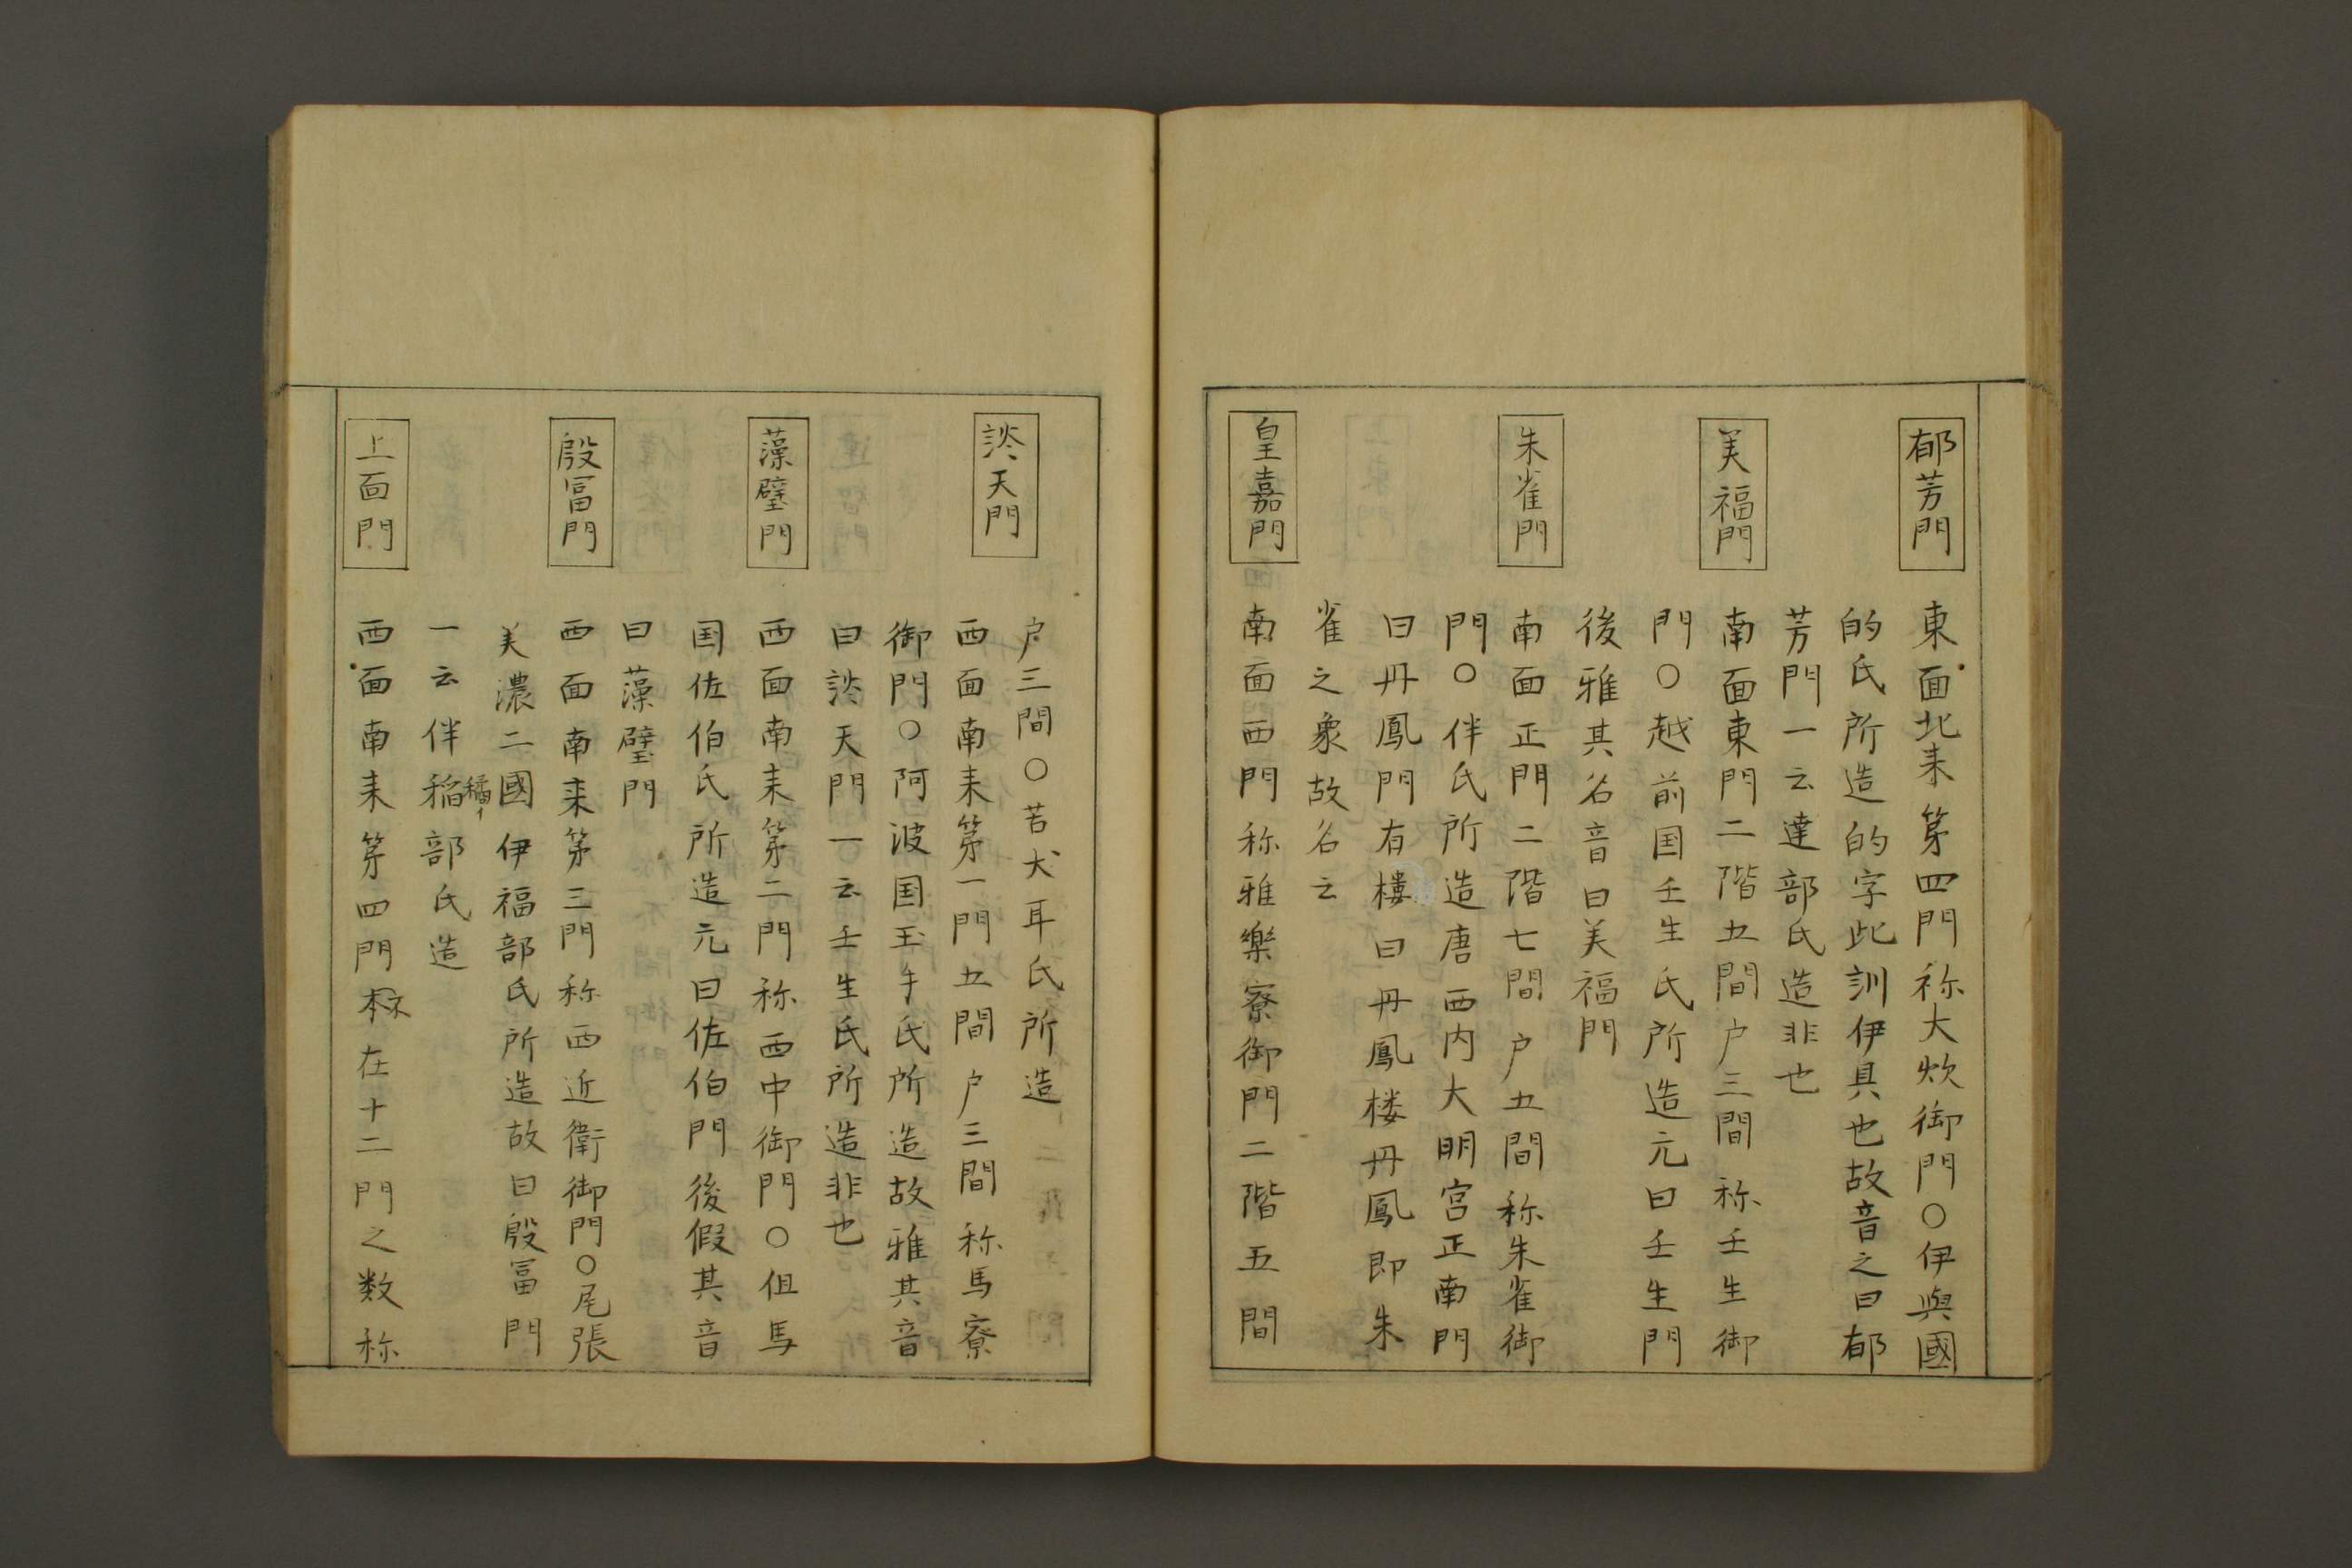 郁芳門
東面北耒第四門祢大炊御門〇伊與國
的氏所造的字此訓伊具也故音之曰郁
芳門一云達部氏造非也
美福門
南面東門二階五間户三間称壬生御
門〇越前国壬生氏所造元曰壬生門
後雅其名音曰美福門
朱雀門
南面正門二階七間户五間称朱雀御
門〇伴氏所造唐西内大明宮正南門
曰丹鳳門有樓曰丹鳳楼丹鳳即朱
雀之象故名云
皇嘉門
南面西門称雅樂寮御門二階五間
户三間〇若犬耳氏所造
談天門
西面南耒第一門五間户三間称馬寮
御門〇阿波国玉手氏所造故雅其音
曰談天門一云壬生氏所造非也
藻璧門
西面南耒第二門称西中御門〇但馬
国佐伯氏所造元曰佐伯門後假其音
曰藻璧門
殷冨門
西面南来第三門称西近衛御門〇尾張
美濃二國伊福部氏所造故曰殷冨門
一云伴稲部氏造
橘イ
上面門
西面南耒第四門本不在十二門之数称